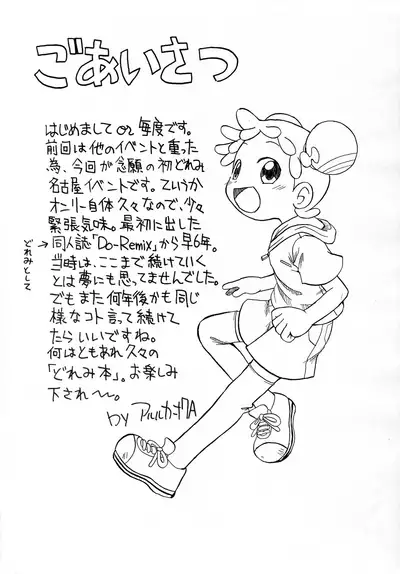 ごあいさつ
はじめまして or 毎度です。
前回は他のイベントと重った
為、今回が念願の初どれみ
名古屋イベントです。ていうか
オンリー自体久々なので、少々
緊張気味。最初に出した
同人誌「Do-Remix」から早6年。
どれみとして
当時は、ここまで続けていく
とは夢にも思ってませんでした。
でもまた何年後かも同じ
様なコト言って続けて
たらいいですね。
何はともあれ久々の
「どれみ本」。お楽しみ
下され〜。
by アルルカン